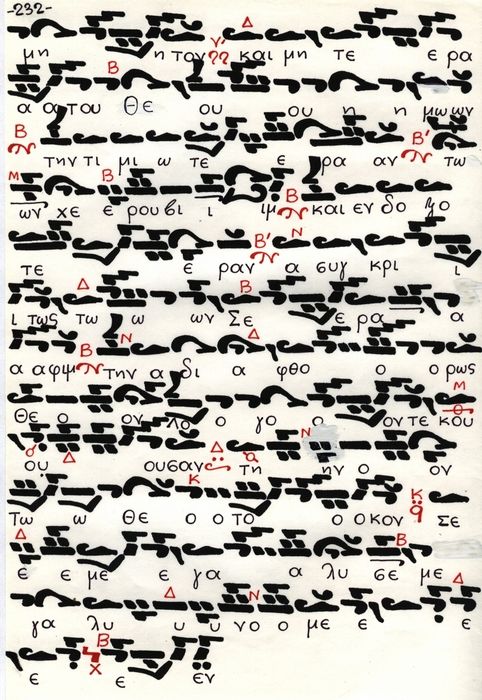 -232-
μη η τον ?? και μη τε ε ρα
α α του Θε ου ου η η μω ων
την τι μι ω τε ε ρα αν τω
ων χε ε ρου βι ι ιμ και εν δο ξο
τε ε ραν α συγ κρι ι
ι τως τω ω ων Σε ε ρα α
α αφιμ την α δι α φθο ο ο ρως
Θε ο ον λο ο γο ο ον τε κου
ου ουσαν τη ην ο ον
Τω ω Θε ο ο το ο ο κον Σε
ε ε με ε γα α λυ σε με
γα λυ υ υ νο ο με ε ε
ε ε εν